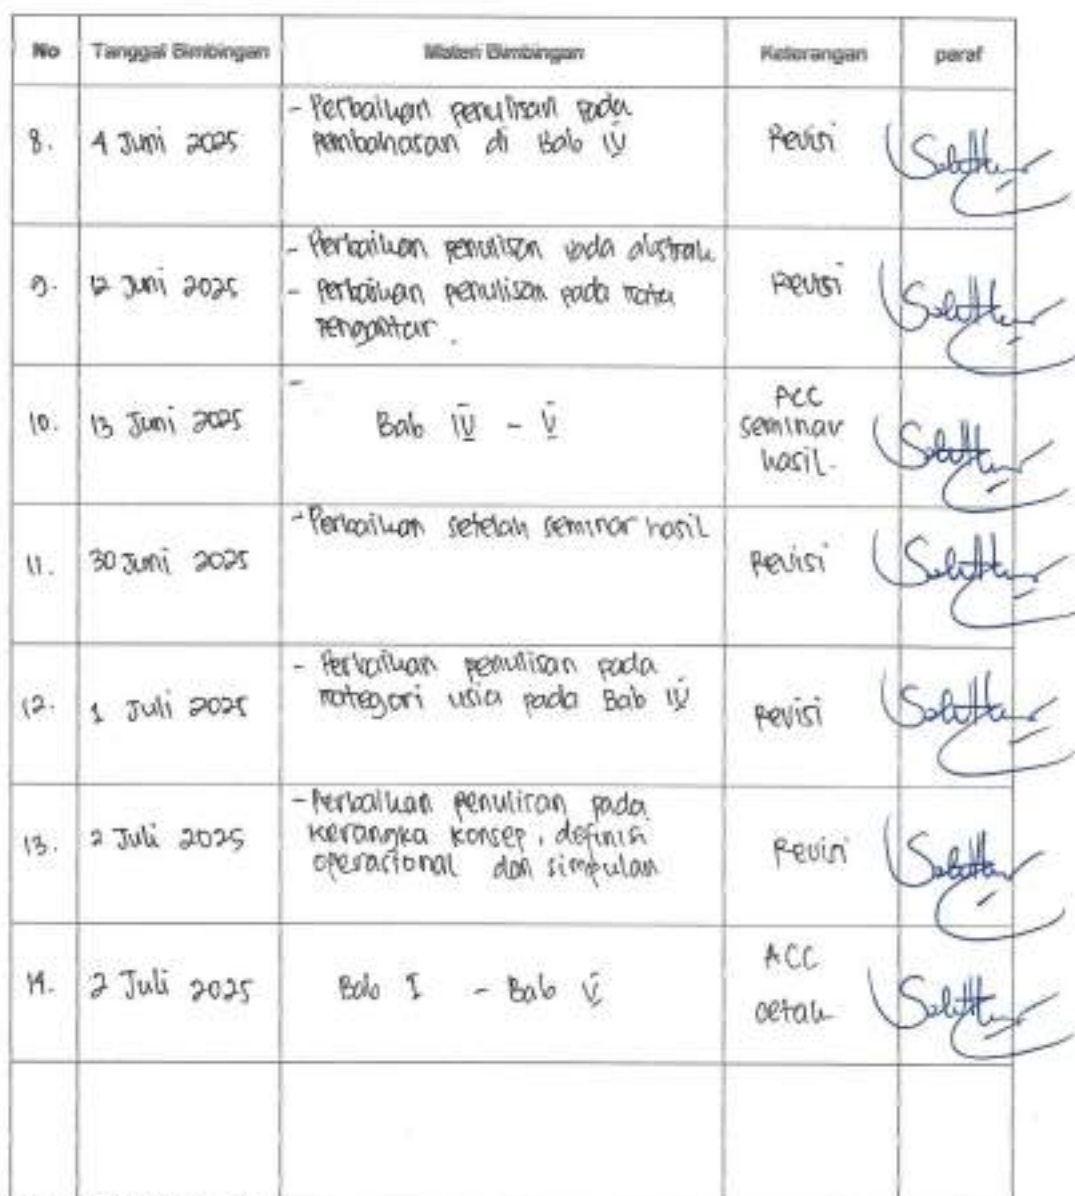 No Tanggal Bimbingan Materi Bimbingan Keterangan paraf
8. 4 Juni 2025 - Perbaikan penulisan pada Revisi
pembahasan di Bab IV
9. 12 Juni 2025 - Perbaikan penulisan pada abstrak Revisi
- Perbaikan penulisan pada kata
pengantar.
10. 13 Juni 2025 - Bab IV - V ACC
seminar
hasil.
11. 30 Juni 2025 - Perbaikan setelah seminar hasil Revisi
12. 1 Juli 2025 - Perbaikan penulisan pada Revisi
kategori usia pada Bab IV
13. 2 Juli 2025 - Perbaikan penulisan pada Revisi
kerangka konsep, definisi
operasional dan simpulan
14. 2 Juli 2025 Bab I - Bab V ACC
cetak